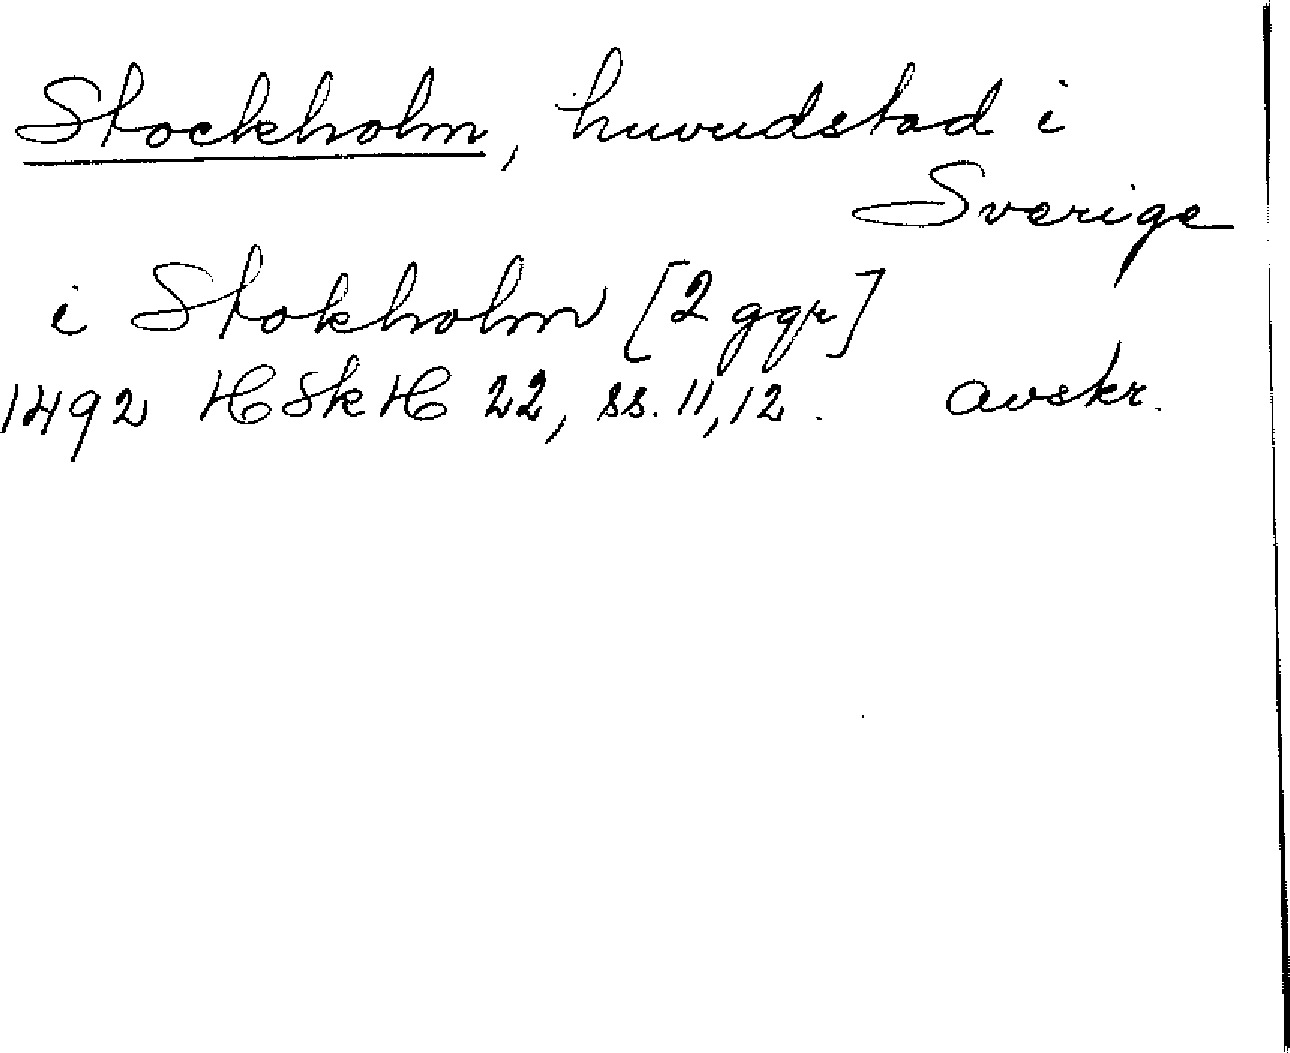 Stockholm, huvudstad i
Sverige
i Stokholm [2 ggr]
1492 HSkH 22, ss. 11, 12. avskr.